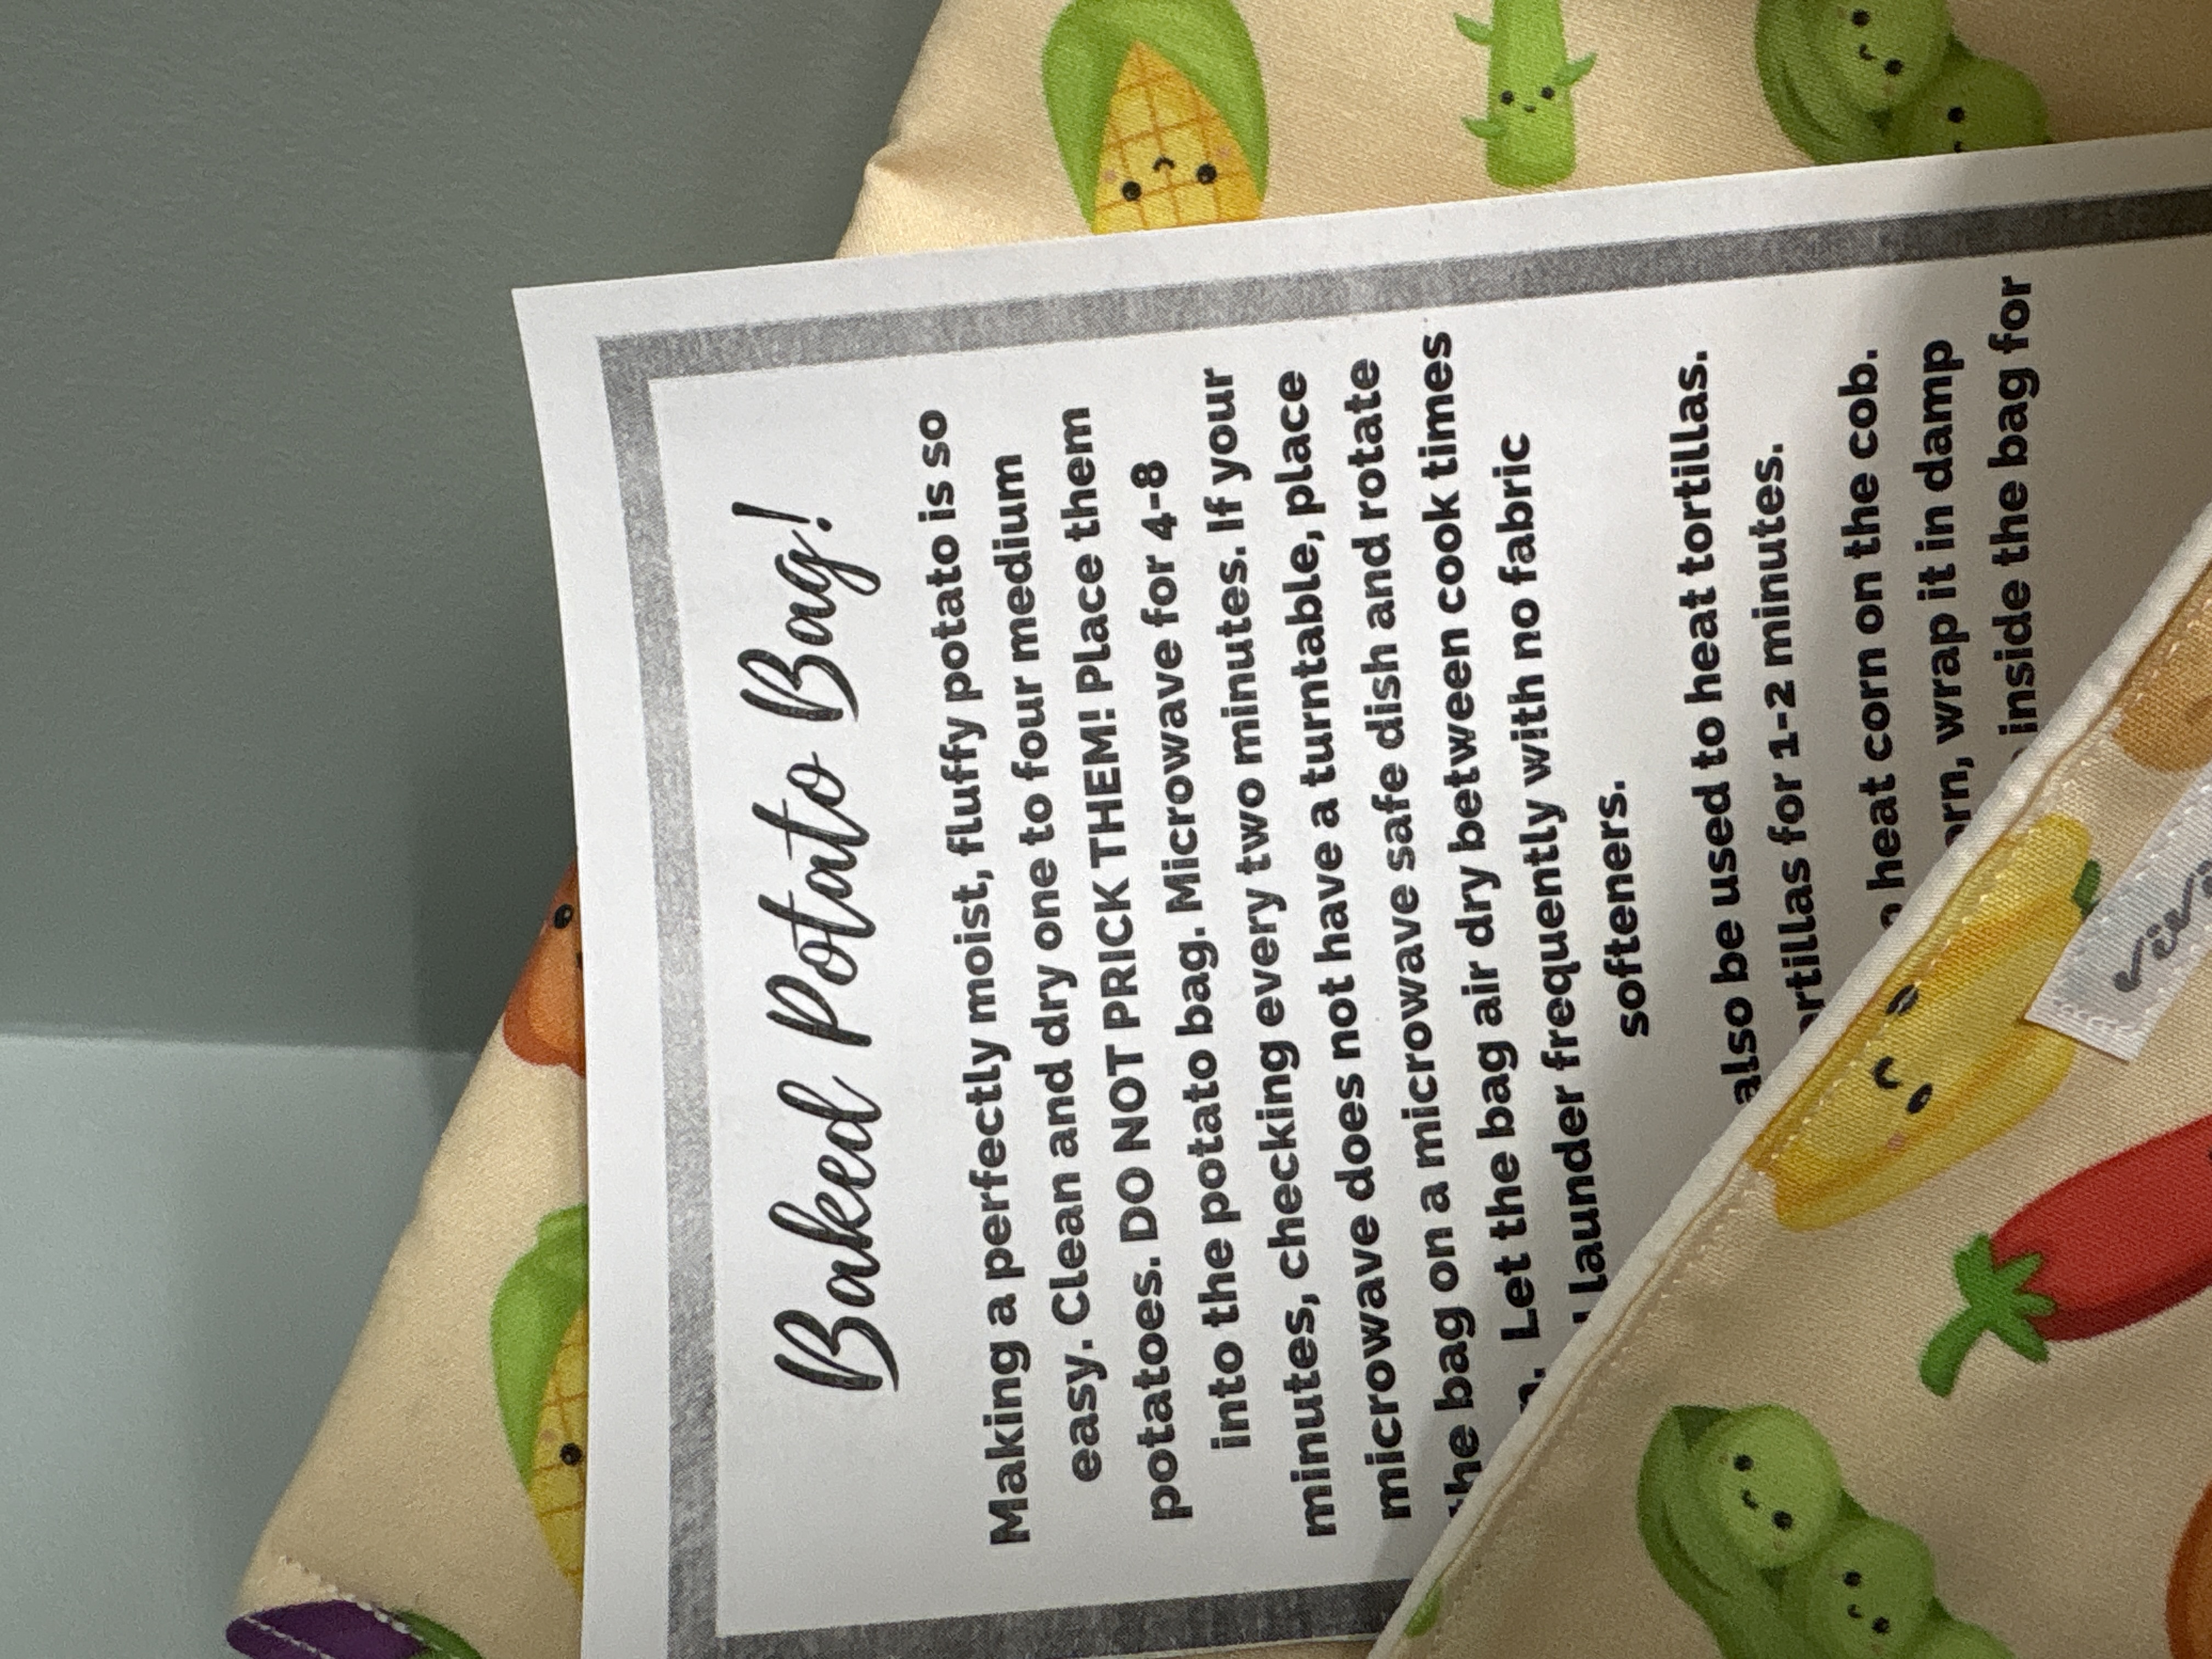 Baked Potato Bag!
Making a perfectly moist, fluffy potato is so
easy. Clean and dry one to four medium
potatoes. DO NOT PRICK THEM! Place them
into the potato bag. Microwave for 4-8
minutes, checking every two minutes. If your
microwave does not have a turntable, place
the bag on a microwave safe dish and rotate
Let the bag air dry between cook times
launder frequently with no fabric
softeners.
also be used to heat tortillas.
for 1-2 minutes.
heat corn on the cob.
wrap it in damp
inside the bag for